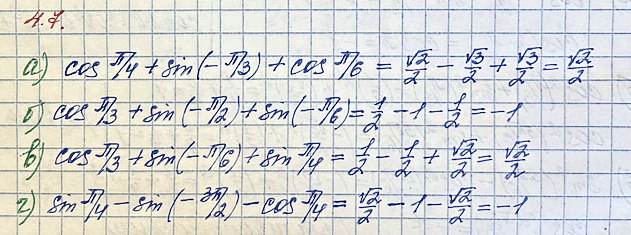 4.7.
а) cos π/4 + sin(-π/3) + cos π/6 = √2/2 - √3/2 + √3/2 = √2/2
б) cos π/3 + sin(-π/2) + sin(-π/6) = 1/2 - 1 - 1/2 = -1
в) cos π/3 + sin(-π/6) + sin π/4 = 1/2 - 1/2 + √2/2 = √2/2
г) sin π/4 - sin(-3π/2) - cos π/4 = √2/2 - 1 - √2/2 = -1